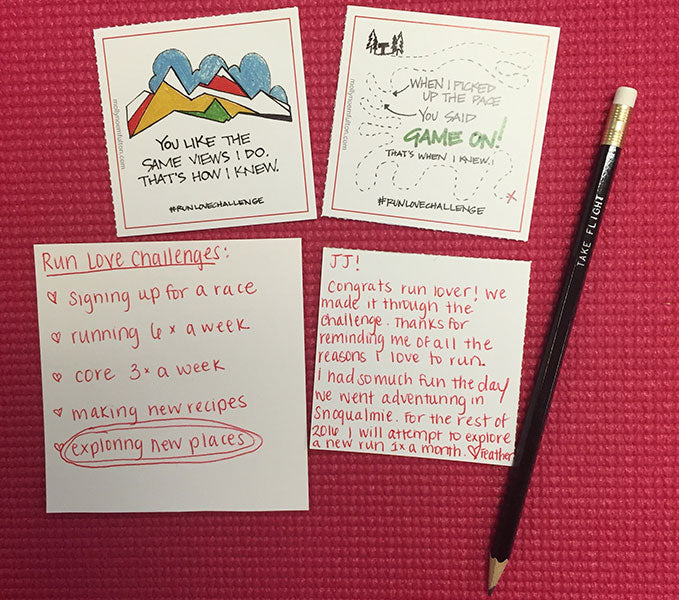 mollynewfulton.com
YOU LIKE THE
SAME VIEWS I DO.
THAT'S HOW I KNEW.
#RUNLOVECHALLENGE
mollynewfulton.com
WHEN I PICKED
UP THE PACE
YOU SAID
GAME ON!
THAT'S WHEN I KNEW.
#RUNLOVECHALLENGE
TAKE FLIGHT
Run Love Challenges:
signing up for a race
running 6x a week
core 3x a week
making new recipes
exploring new places
JJ!
Congrats run lover! We
made it through the
challenge. Thanks for
reminding me of all the
reasons I love to run.
I had so much fun the day
we went adventuring in
Snoqualmie. For the rest of
2016 I will attempt to explore
a new run 1x a month. Feather